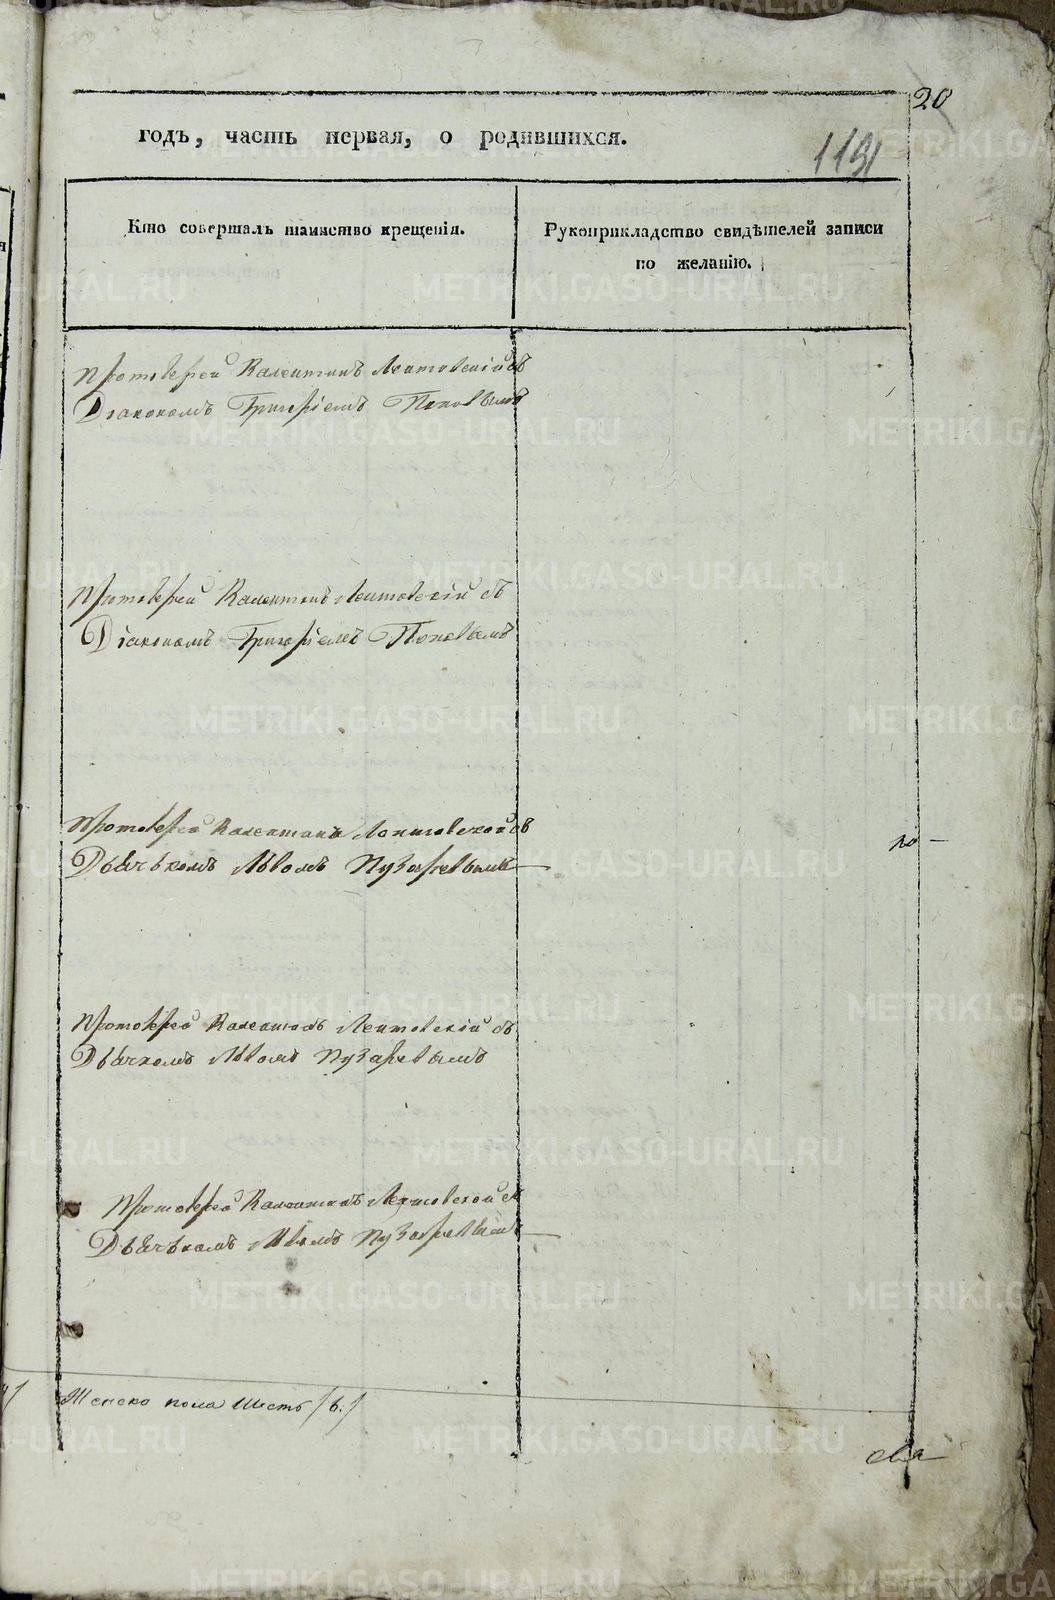 20
годъ, часть первая, о родившихся.
119
Кто совершалъ таинство крещенія.
Рукоприкладство свидѣтелей записи
по желанію.
Протоіерей Валентинъ Лентовскій съ
Діакономъ Григоріемъ Поповымъ
Протоіерей Валентинъ Лентовскій съ
Діакономъ Григоріемъ Поповымъ
Протоіерей Валентинъ Лентовской съ
Дьячькомъ Львомъ Пузыревымъ
Протоіерей Валентинъ Лентовскій съ
Дьячкомъ Львомъ Пузыревымъ
Протоіерей Валентинъ Лентовской съ
Дьячькомъ Львомъ Пузыревымъ
Женска пола шесть /6./
METRIKI.GASO-URAL.RU